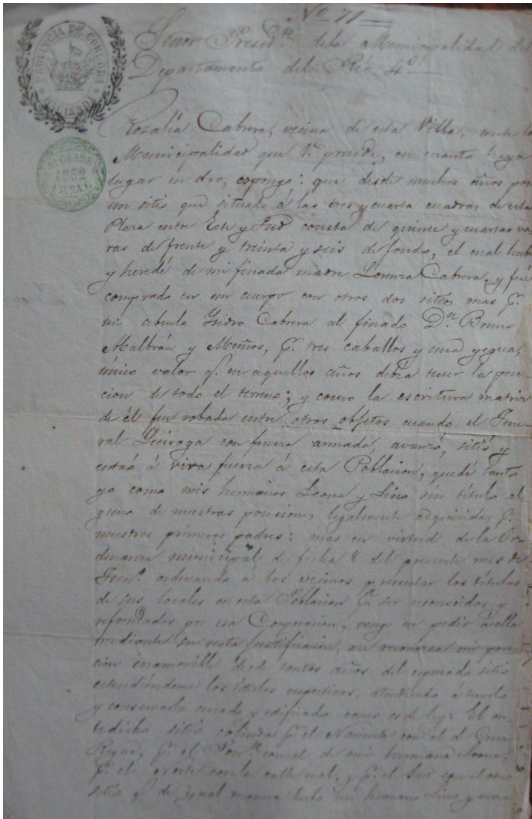 Nº 71
Señor Presid.te de la Municipalidad del
Departamento del Rio 4º
PROVINCIA DE CORDOBA
Rosalía Cabrera, vecina de esta Villa, ante la
Municipalidad que V. preside, en cuanto haya
lugar en dro, espongo: que desde muchos años poseo
un sitio que situado á las tres y cuarta cuadras de esta
Plaza entre Este y Sud consta de quince y cuartas va
ras de frente y treinta y seis de fondo, el cual hube
y heredé de mi finada madre Lorenza Cabrera, y fué
comprado en un cuerpo con otros dos sitios mas p.r
mi abuelo Isidro Cabrera al finado D.n Bruno
Malbrán y Muñoz, p.r tres caballos y una yegua,
único valor q.e en aquellos años debia tener la pose
cion de todo el terreno; y como la escritura matriz
de él fue robada entre otros objetos cuando el Gene
ral Quiroga con fuerza armada, avanzó, sitió y
entró á viva fuerza á esta Poblacion, quedé tanto
yo como mis hermanos Leona y Lino sin título al
guno de nuestras posesiones legalmente adquiridas p.r
nuestros primeros padres: mas en virtud de la Or
denanza municipal de fecha 8 del presente mes de
ordenando á los vecinos presentar los títulos
de sus locales en esta Poblacion p.a ser reconocidos y
refrendados por esa Corporacion, vengo en pedir á ella
mediante su recta justificacion, se reconozca mi pose
cion inamovible desde tantos años del espresado sitio
estendiéndome los títulos respectivos, atendiendo á tenerlo
y conservarlo cercado y edificado como es de ley. El an
tedicho sitio colinda p.r el Naciente con el de
p.r el Pon.te con el de mi hermana Leona,
p.r el Norte con la calle real, y p.r el Sud con el otro
sitio q.e de igual manera hubo mi hermano Lino y